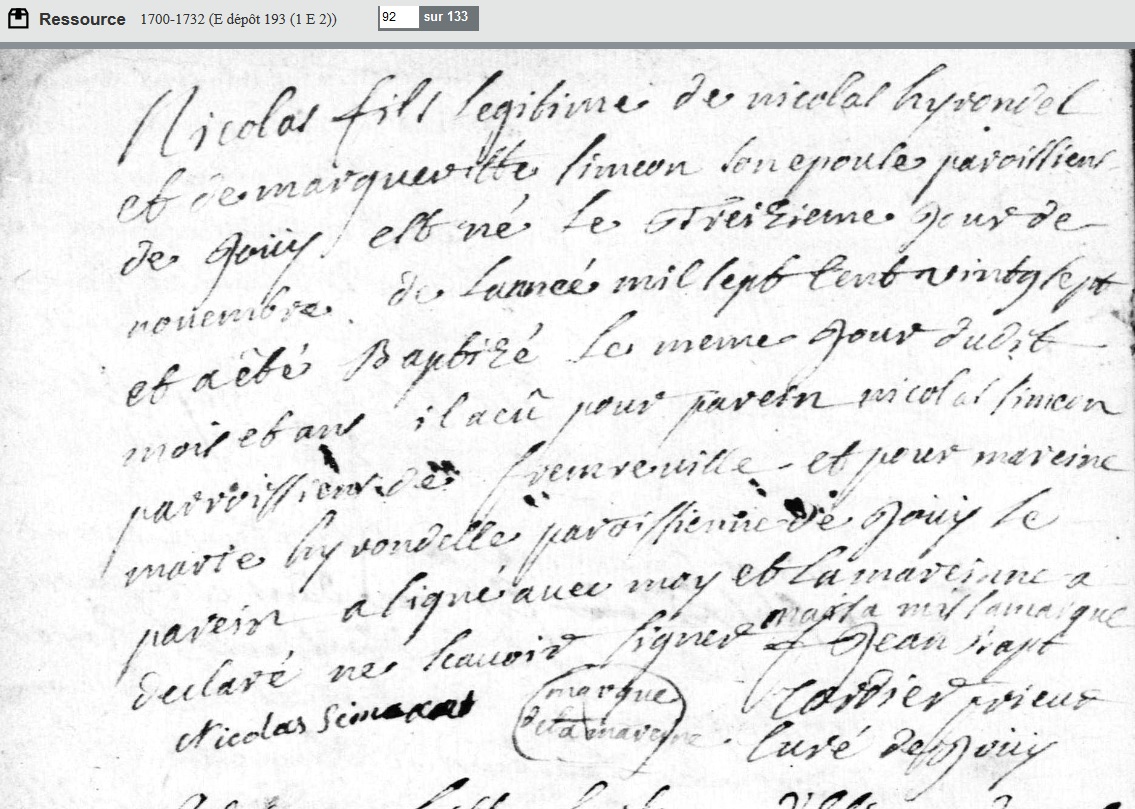 Ressource 1700-1732 (E dépôt 193 (1 E 2)) 92 sur 133
Nicolas fils legitime de nicolas hyrondel
et de margueritte simeon son epouse paroissiens
de Jouy est né le Treizieme Jour de
novembre de Lanneé mil sept Cent vingtsept
et a été Baptizé le meme Jour dudit
mois et ans il a eû pour parein nicolas simeon
parroissiens de fremreville et pour mareine
marie hyrondelle paroissienne de Jouy le
parein a signé avec moy et la mareinne a
declaré ne scavoir signer mais a mis sa marque
f Jean bapt
Nicolas Simeon marque Cordier prieur
de la mareine Curé de Jouy